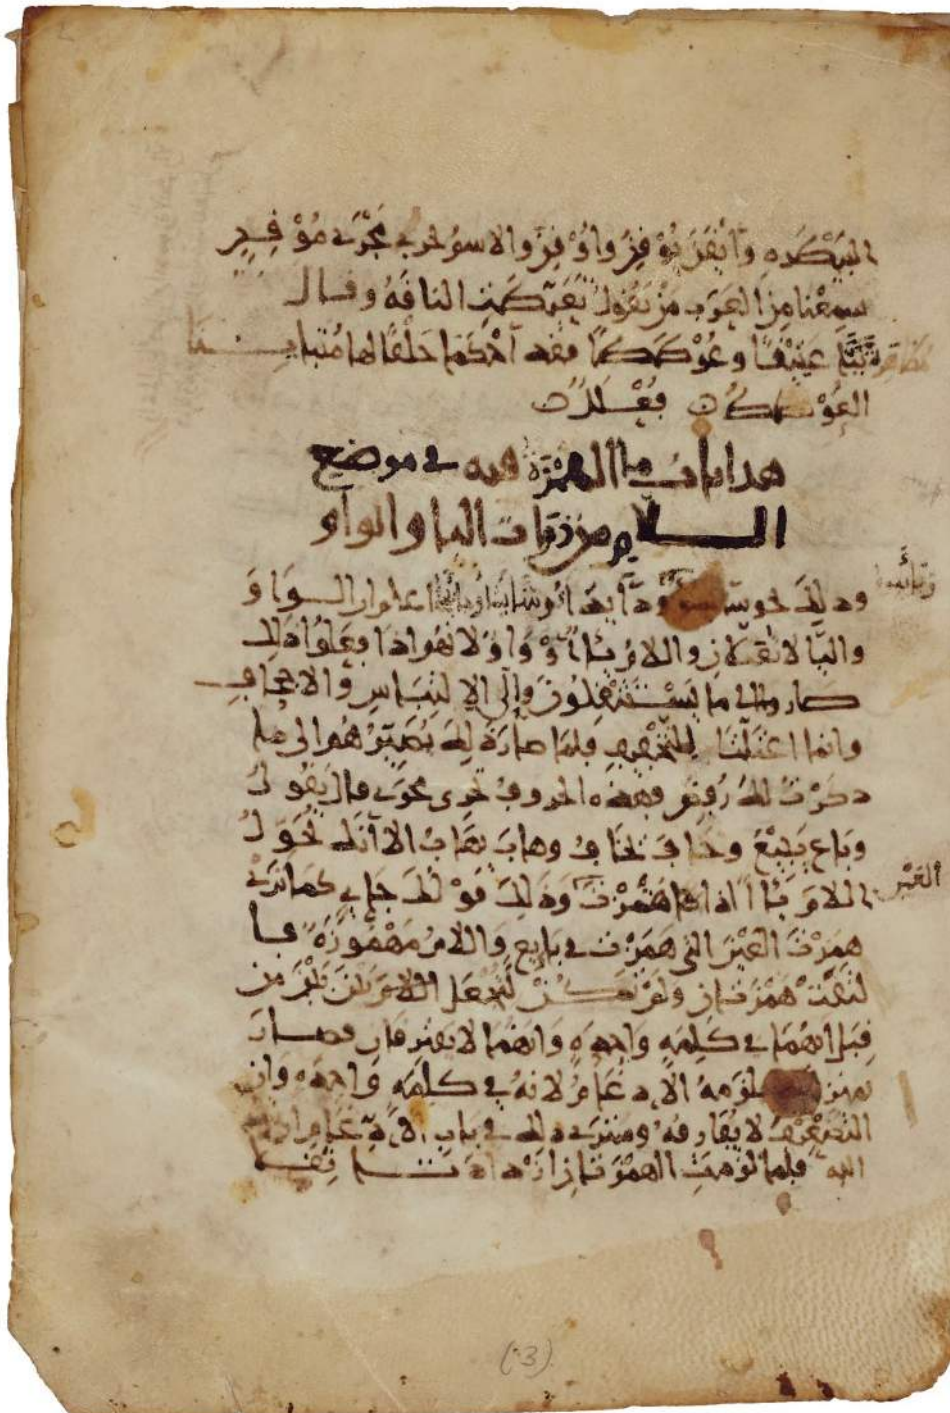 وَأَيْقَنَ يُوْقِنُ وَأُوْقِنَ والاسوُ يجري مَجْرَى مُوْقِنٍ
سمِعْنا مِن العَرَب مَنْ يَقُول تَعَيَّطَتِ الناقَهُ وقال
مُظَاهِرَةً نَيًّا عَتِيقًا وعُوْطَطًا فقد أحْكَما خَلْقًا لها مُتَبايِنا
العُوْطَطُ فُعْلَلٌ
هذا باب ما الهَمْزَة فيه في موضع
اللام من ذوات اليا والواو
وذلك نحو سَا اعلم ان الواوَ
واليَا لا تُعَلَّانِ واللامُ يَاءٌ أَوْ وَاوٌ لانهم اذا فعَلُوا ذلك
صاروا الى ما يَسْتَثْقِلُونَ وإلَى الالتِبَاسِ وَالاجحافِ
وانما اعتَلَّتَا للتخفيفِ فلمّا صار ذلك يُصَيِّرُهُم الى ما
ذكرتُ لك رُفِضَ فهذه الحروفُ تجرى مجرَى قال يَقُولُ
وبَاع يَبِيْعُ وخَافَ يَخَافُ وهابَ يَهَابُ الا أنَّك تُحَوِّلُ
اللامَ يَاءً اذا هَمَزْتَ وَذَلِكَ قَوْلُكَ جَاءٍ كما تَرَى
العَيْنَ
هَمَزْتَ العَيْنَ التي هَمَزْتَ في بايِعٍ وَاللامُ مَهْمُوزَةٌ فا
لتَقَتْ هَمْزَتانِ ولم تَكُنْ لِتُجْعَلَ اللامُ بَيْنَ بَيْنَ مِن
قِبَل انهُمَا في كَلِمَهٍ وَاحِدَهٍ وَانهُمَا لا يَفْتَرِقَانِ فصارَ
بمنزلة يلزمهُ الادغَامُ لانهُ في كلِمَهٍ وَاحِدَهٍ وَان
التضْعِيْفَ لا يُفَارِقُهُ وسَتَرَى ذلك في بَابِ الادغَامِ ان شا
الله فلما لزِمَتِ الهَمْزَتانِ ازْدَادَتَا ثِقَلا
(3)